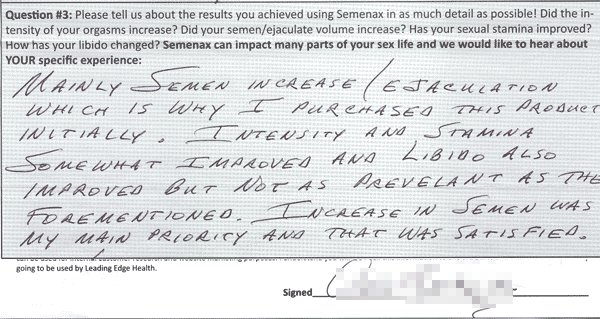 Question #3: Please tell us about the results you achieved using Semenax in as much detail as possible! Did the in-
tensity of your orgasms increase? Did your semen/ejaculate volume increase? Has your sexual stamina improved?
How has your libido changed? Semenax can impact many parts of your sex life and we would like to hear about
YOUR specific experience:
MAINLY SEMEN INCREASE / EJACULATION
WHICH IS WHY I PURCHASED THIS PRODUCT
INITIALLY. INTENSITY AND STAMINA
SOMEWHAT IMPROVED AND LIBIDO ALSO
IMPROVED BUT NOT AS PREVELANT AS THE
FOREMENTIONED. INCREASE IN SEMEN WAS
MY MAIN PRIORITY AND THAT WAS SATISFIED.
going to be used by Leading Edge Health.
Signed